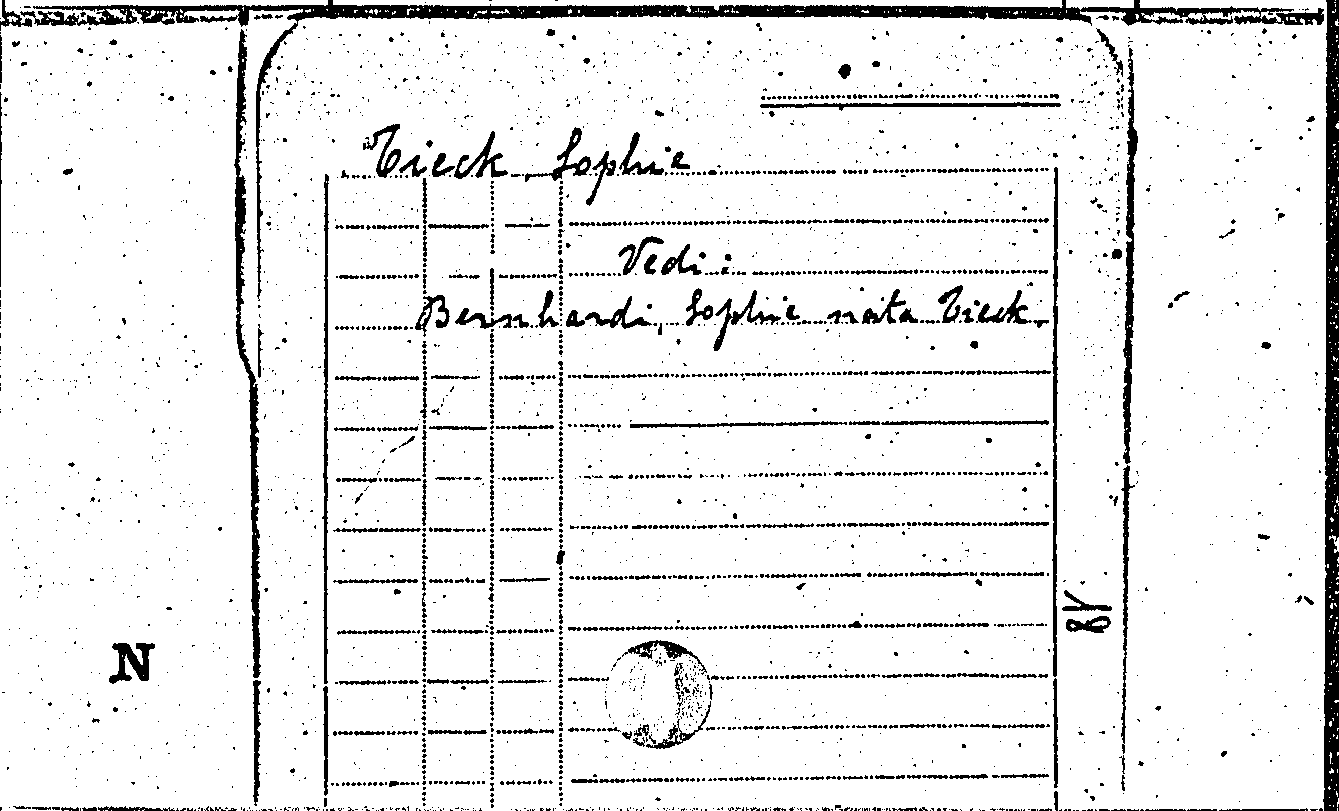 Tieck, Sophie.
Vedi:
Bernhardi, Sophie nata Tieck.
N